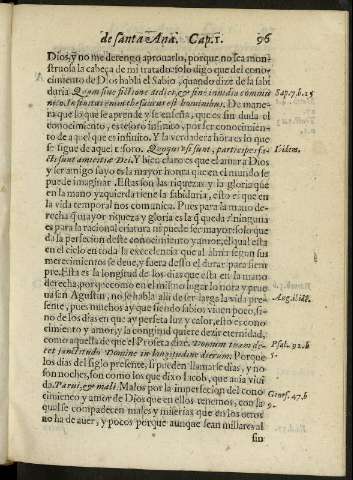 de santa Ana. Cap. 1. 96
Dios, y no me detengo aprouarlo, porque no sea mon-
struosa la cabeça de mi tratado: solo digo que del cono-
cimiento de Dios habla el Sabio, quando dize de la sabi
duria. Quam sine fictione didici, & sine inuidia commu
nico. Infinitus enim thesaurus est hominibus. De mane-
ra que lo que se aprende y se enseña, que es sin duda el
conocimiento, es tesoro infinito, por ser conocimien-
to de aquel que es infinito. Y la verdadera hora es lo que
se sigue de aquel tesoro. Quo qui vsi sunt, participes fa-
cti sunt amicitiæ Dei. Y bien claro es que el amar a Dios
y ser amigo suyo es la mayor honra que en el mundo se
puede imaginar. Estas son las riquezas y la gloria que
en la mano yzquierda tiene la sabiduria, esto es que en
la vida temporal nos comunica. Pues para la mano de-
recha q̃ mayor riqueza y gloria es la q̃ queda? ninguna
es para la racional criatura ni puede ser mayor: solo que
da la perfecion deste conocimiento y amor, el qual esta
en el cielo en toda la excelencia que al alma segun sus
merecimientos se deue, y fuera desso el durar para siem
pre. Esta es la longitud de los dias que esta en la mano
derecha, porque como en el mismo lugar lo nota y prue
ua san Agustin, no se habla alli de ser larga la vida pre-
sente, pues muchos ay que siendo sabios viuen poco, si-
no de los dias en que ay perfeta luz y calor, esto es cono-
cimiento y amor, y la longitud quiere dezir eternidad,
como aquella de que el Profeta dize. Domum tuam de-
cet sanctitudo Domine in longitudine dierum. Porque
los dias del siglo presente, si pueden llamarse dias, y no
son noches, son como los que dixo Iacob, que auia viui
do. Parui, & mali. Malos por la imperfecion del cono
cimiento y amor de Dios que en ellos tenemos, con la
qual se compadecen males y miserias que en los otros
no ha de auer, y pocos porque aunque sean millares al
sin
Sap. 7. b. 15
Ibidem.
Aug. ibid.
Psal. 92. b
5.
Genes. 47. b
9.